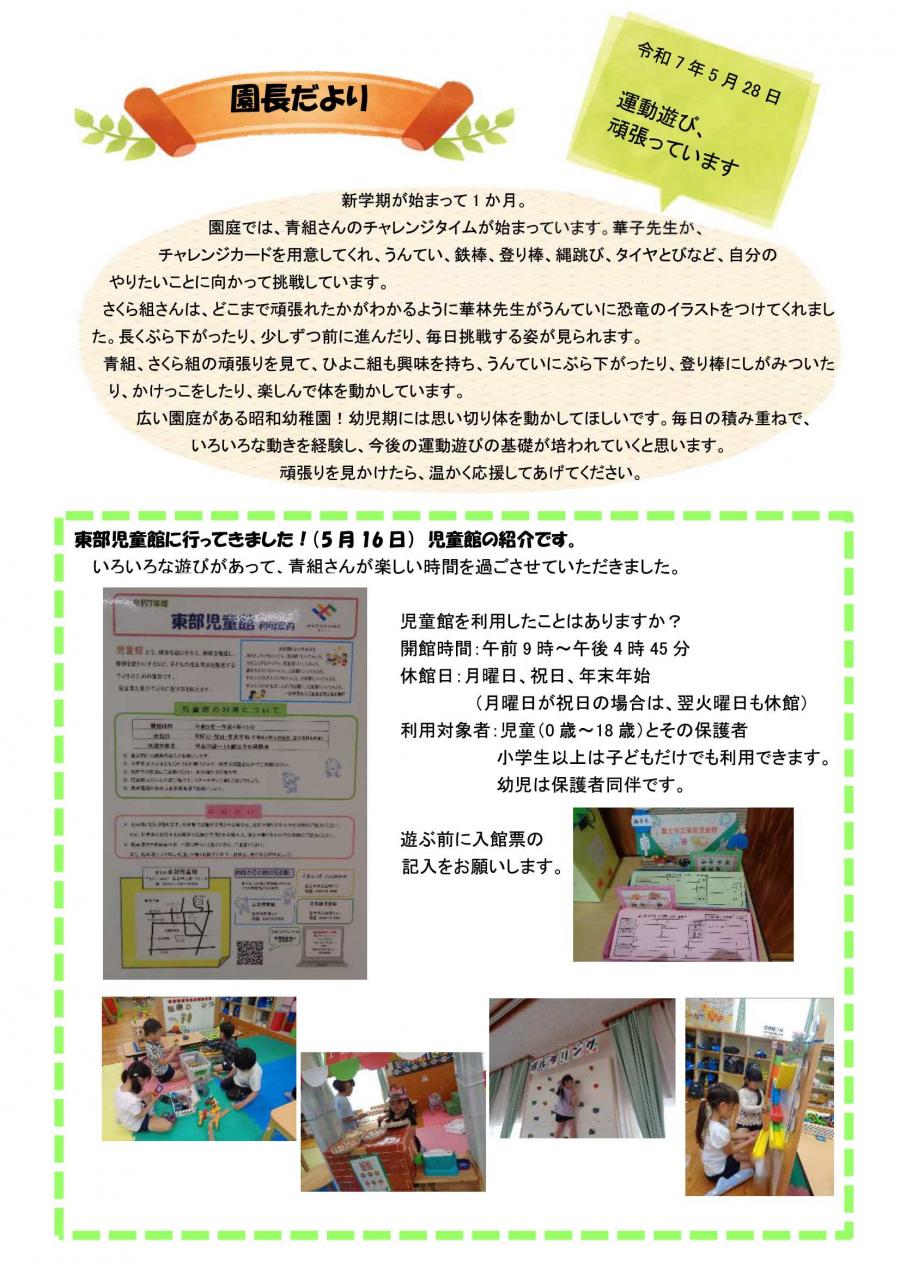 園長だより
令和7年5月28日
運動遊び、
頑張っています
新学期が始まって1か月。
園庭では、青組さんのチャレンジタイムが始まっています。華子先生が、
チャレンジカードを用意してくれ、うんてい、鉄棒、登り棒、縄跳び、タイヤとびなど、自分の
やりたいことに向かって挑戦しています。
さくら組さんは、どこまで頑張れたかがわかるように華林先生がうんていに恐竜のイラストをつけてくれまし
た。長くぶら下がったり、少しずつ前に進んだり、毎日挑戦する姿が見られます。
青組、さくら組の頑張りを見て、ひよこ組も興味を持ち、うんていにぶら下がったり、登り棒にしがみついた
り、かけっこをしたり、楽しんで体を動かしています。
広い園庭がある昭和幼稚園！幼児期には思い切り体を動かしてほしいです。毎日の積み重ねで、
いろいろな動きを経験し、今後の運動遊びの基礎が培われていくと思います。
頑張りを見かけたら、温かく応援してあげてください。
東部児童館に行ってきました！（5月16日） 児童館の紹介です。
いろいろな遊びがあって、青組さんが楽しい時間を過ごさせていただきました。
令和7年度
東部児童館 利用案内
児童館の利用について
東部児童館
児童館を利用したことはありますか？
開館時間：午前9時～午後4時45分
休館日：月曜日、祝日、年末年始
（月曜日が祝日の場合は、翌火曜日も休館）
利用対象者：児童（0歳～18歳）とその保護者
小学生以上は子どもだけでも利用できます。
幼児は保護者同伴です。
遊ぶ前に入館票の
記入をお願いします。
ボルダリング